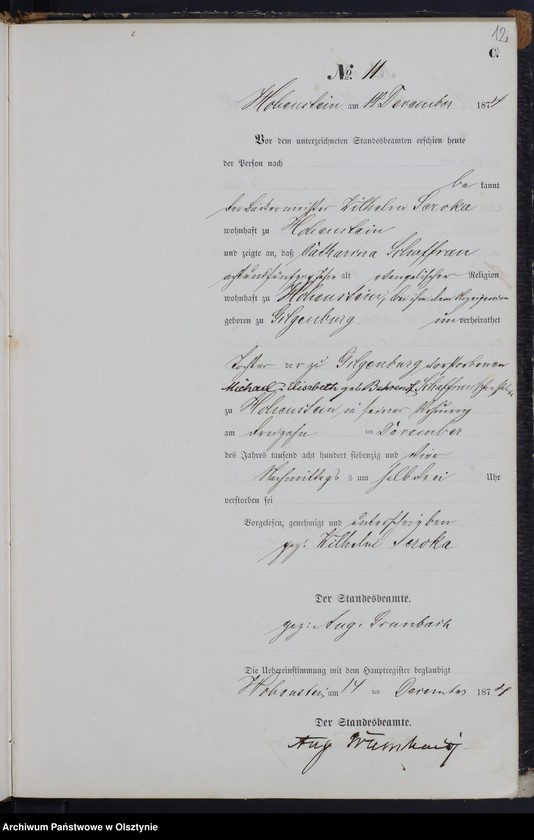 12
C.
No. 11
Hohenstein am 14 Dezember 1874
Vor dem unterzeichneten Standesbeamten erschien heute
der Person nach
be kannt
der Bäckermeister Wilhelm Seroka
wohnhaft zu Hohenstein
und zeigte an, daß Catharina Schaffran
achtundfünfzig Jahre alt evangelischer Religion
wohnhaft zu Hohenstein, bei ihm dem Anzeigenden
geboren zu Gilgenburg unverheirathet
Tochter der zu Gilgenburg verstorbenen
Michael u. Elisabeth geb. Schaffranschen
zu Hohenstein, in seiner Wohnung
am dreizehn ten Dezember
des Jahres tausend acht hundert siebenzig und vier
Nachmittags um halb drei Uhr
verstorben sei
Vorgelesen, genehmigt und unterschrieben
gez: Wilhelm Seroka
Der Standesbeamte.
gez: Aug.
Die Uebereinstimmung mit dem Hauptregister beglaubigt
Hohenstein, am 14 ten Dezember 1874
Der Standesbeamte.
Aug
Archiwum Państwowe w Olsztynie